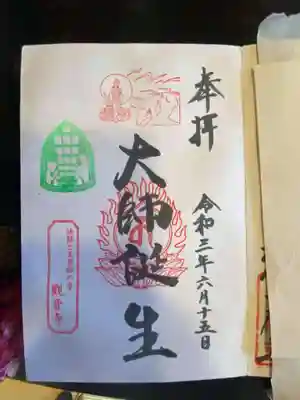 奉拝
令和三年六月十五日
大師誕生
観音寺